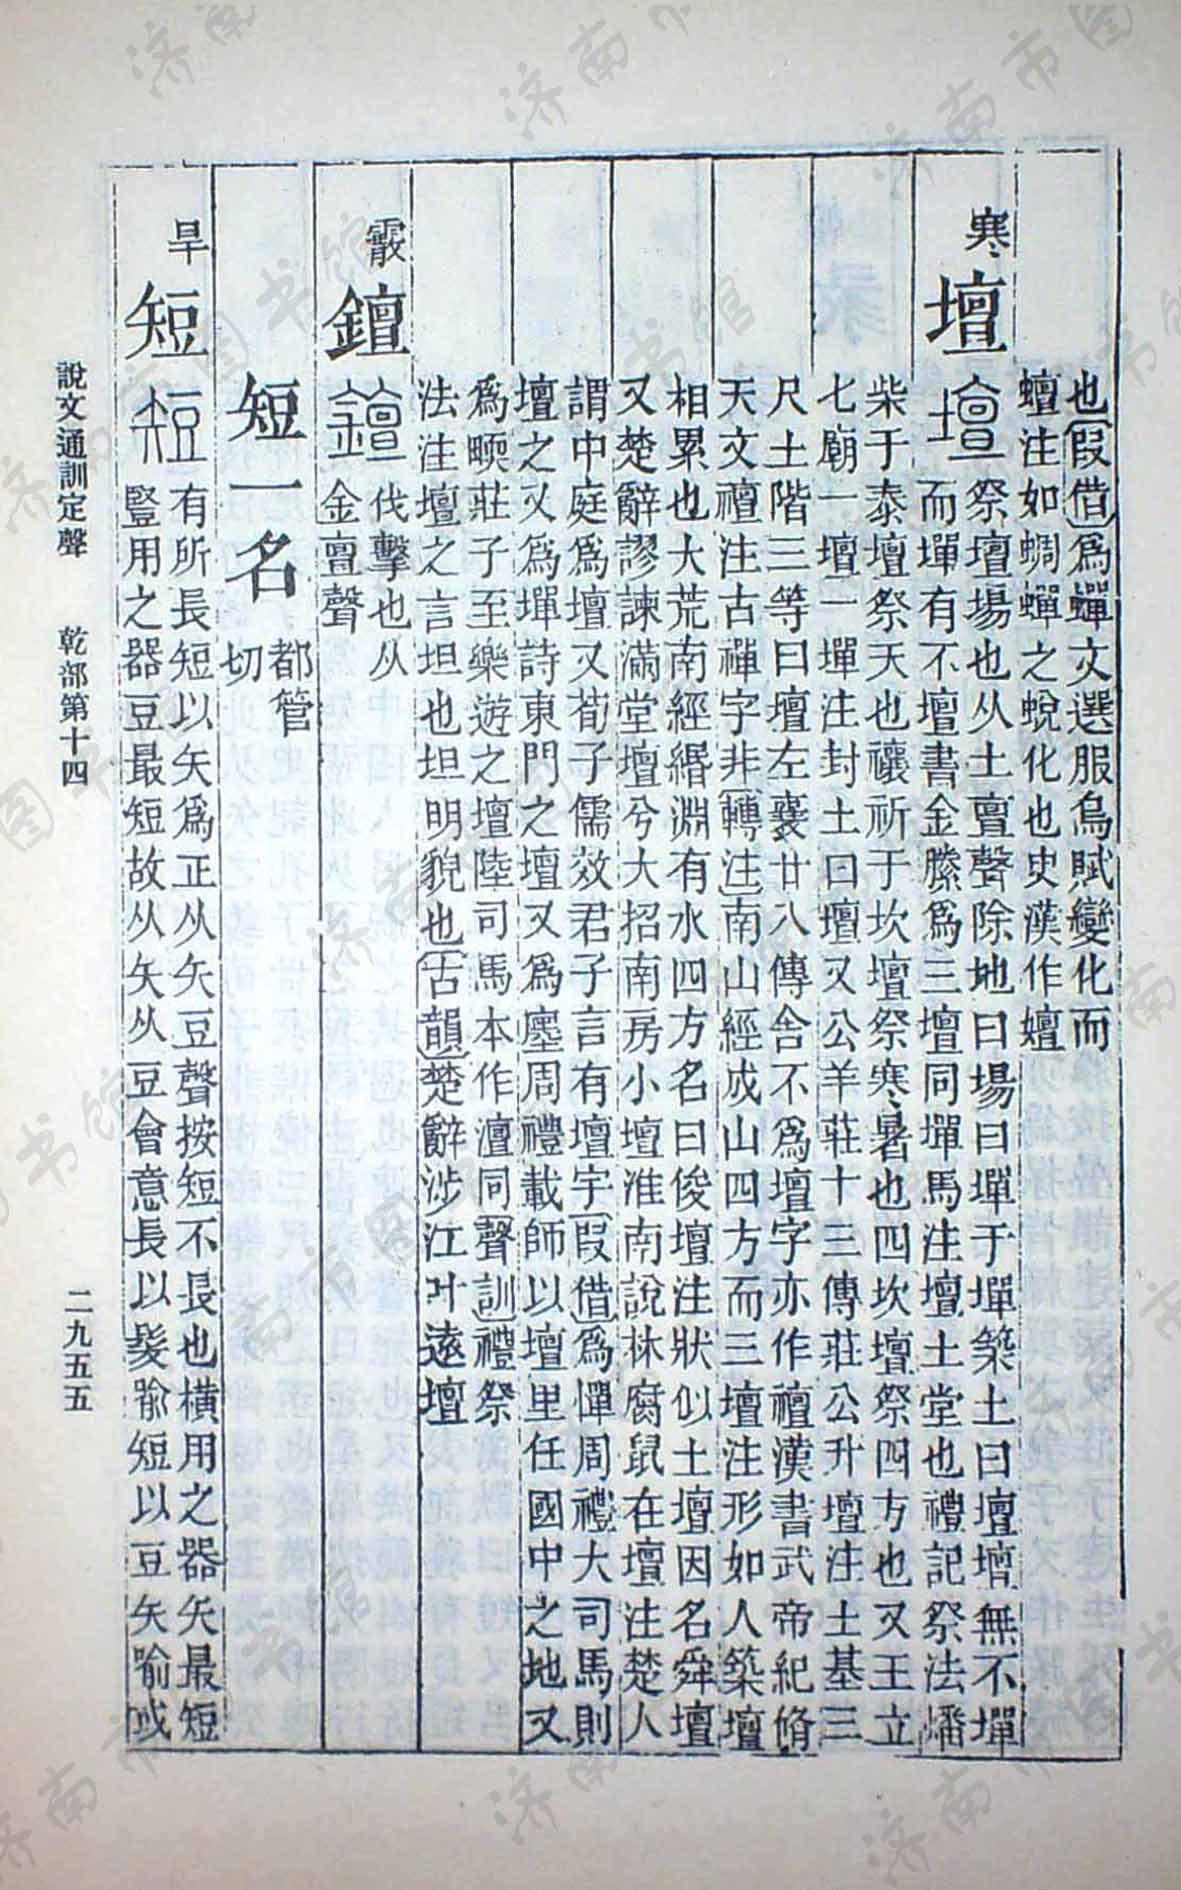 也假借爲蟬文選服鳥賦變化而
蟺注如蜩蟬之蛻化也史漢作嬗
寒
壇
祭壇場也从土亶聲除地曰場曰墠于墠築土曰壇壇無不墠
而墠有不壇書金縢爲三壇同墠馬注壇土堂也禮記祭法燔
柴于泰壇祭天也禳祈于坎壇祭寒暑也四坎壇祭四方也又王立
七廟一壇一墠注封土曰壇又公羊莊十三傳莊公升壇注土基三
尺土階三等曰壇左襄廿八傳舍不爲壇字亦作襢漢書武帝紀脩
天文襢注古禪字非轉注南山經成山四方而三壇注形如人築壇
相累也大荒南經緡淵有水四方名曰俊壇注狀似土壇因名舜壇
又楚辭謬諫滿堂壇兮大招南房小壇淮南說林腐鼠在壇注楚人
謂中庭爲壇又荀子儒效君子言有壇宇假借爲憚周禮大司馬則
壇之又爲墠詩東門之壇又爲廛周禮載師以壇里任國中之地又
爲㬊莊子至樂遊之壇陸司馬本作澶同聲訓禮祭
法注壇之言坦也坦明貌也古韻楚辭涉江叶遠壇
霰
鐔
伐擊也从
金亶聲
短一名
都管
切
旱
短
有所長短以矢爲正从矢豆聲按短不長也橫用之器矢最短
豎用之器豆最短故从矢从豆會意長以髮喻短以豆矢喻或
說文通訓定聲
乾部第十四
二九五五